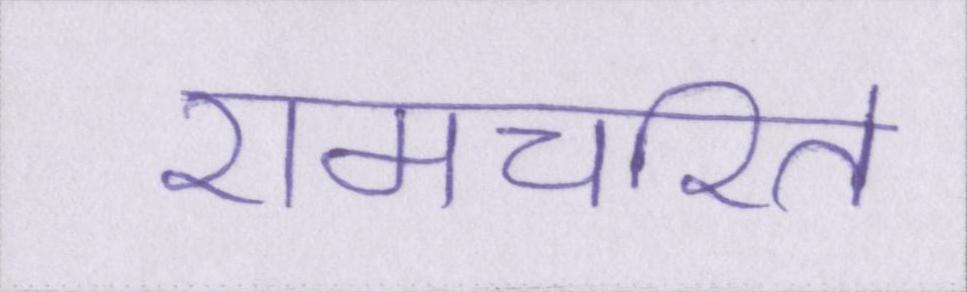 रामचरित